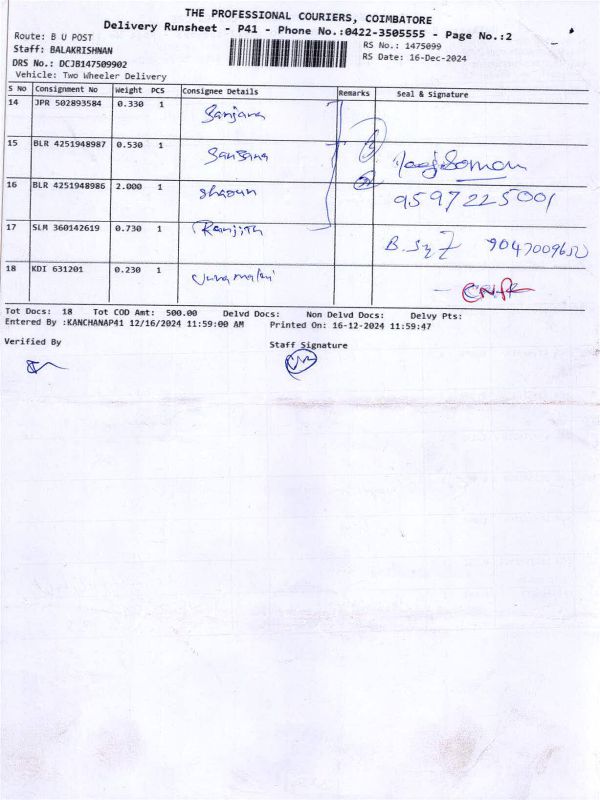 THE PROFESSIONAL COURIERS, COIMBATORE
Delivery Runsheet - P41 - Phone No.:0422-3505555 - Page No.:2
Route: B U POST
RS No.: 1475099
Staff: BALAKRISHNAN
RS Date: 16-Dec-2024
DRS No.: DCJB147509902
Vehicle: Two Wheeler Delivery
S No Consignment No Weight PCS Consignee Details Remarks Seal & Signature
14 JPR 502893584 0.330 1 Sanjana
15 BLR 4251948987 0.530 1 Sansana
16 BLR 4251948986 2.000 1 Shaoun
9597225001
17 SLM 360142619 0.730 1 Ranjith
18 KDI 631201 0.230 1
Tot Docs: 18 Tot COD Amt: 500.00 Delvd Docs: Non Delvd Docs: Delvy Pts:
Entered By :KANCHANAP41 12/16/2024 11:59:00 AM Printed On: 16-12-2024 11:59:47
Verified By
Staff Signature